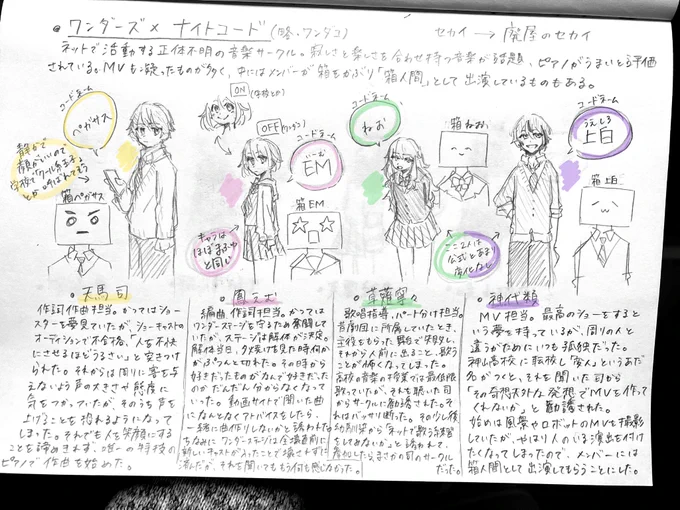 ワンダーズ × ナイトコード (略・ワンダコ)
セカイ → 廃屋のセカイ
ネットで活動する正体不明の音楽サークル。寂しさと楽しさを合わせ持つ音楽が話題、ピアノがうまいとも評価
されている。MVも凝ったものが多く、中にはメンバーが箱をかぶり「箱人間」として出演しているものもある。
コードネーム
ペガサス
静かで
顔がいいので
学校で「クール王子」
とか呼ばれてそう
箱ペガサス
ON (学校とか)
OFF (ワンダコ)
コードネーム
いーむ
EM
箱EM
キャラは
ほぼまふゆ
と同じ
コードネーム
ねお
箱ねお
ここ2人は
公式とあま
変化なし
コードネーム
うえしろ
上白
箱上白
・天馬 司
作詞作曲担当。かつてはショー
スターを夢見ていたが、ショーキャストの
オーディションで不合格、「人を不快
にさせるほどうるさい」と突きつけ
られた。それからは周りに害を与
えないよう声の大きさや態度に
気をつかっていたが、そのうち声を
上げることを恐れるようになって
しまった。それでも人を笑顔にする
ことを諦めきれず、唯一の特技の
ピアノで作曲を始めた。
・鳳えむ
編曲、作詞担当。かつては
ワンダーステージを守るため奮闘して
いたが、ステージは解体が決定。
解体当日、夕焼けを見た時何か
がぷつんと切れた。その時から
好きだったものがなんで好きだった
のかだんだん分からなくなって
いった。動画サイトで聞いた曲
になんとなくアドバイスをしたら、
一緒に曲作りしないかと誘われた
ちなみにワンダーステージは会場直前に
新しいキャストが入ったことで壊さずに
済んだが、それを聞いてももう何も感じなかった。
・草薙寧々
歌唱指導、パート分け担当。
昔劇団に所属していたとき、
主役をもらった舞台で失敗し、
それから人前に出ること、歌う
ことが怖くなってしまった。
高校の音楽の授業では最低限
歌っていたが、それを聴いた司
からサークルに勧誘された。そ
れはバッサリ断った。その少し後
幼馴染から「ネットで歌う練習
をしてみないか」と誘われて、
参加したらまさかの司のサークル
だった。
・神代類
MV担当。最高のショーをすると
いう夢を持っているが、周りの人と
違うがためにいつも孤独だった。
神山高校に転校し「変人」というあだ
名がつくと、それを聞いた司から
「その奇想天外な発想でMVを作って
くれないか」と勧誘された。
始めは風景やロボットのMVを撮影
していたが、やはり人のいる演出を付け
たくなってしまったので、メンバーには
箱人間として出演してもらうことにした。